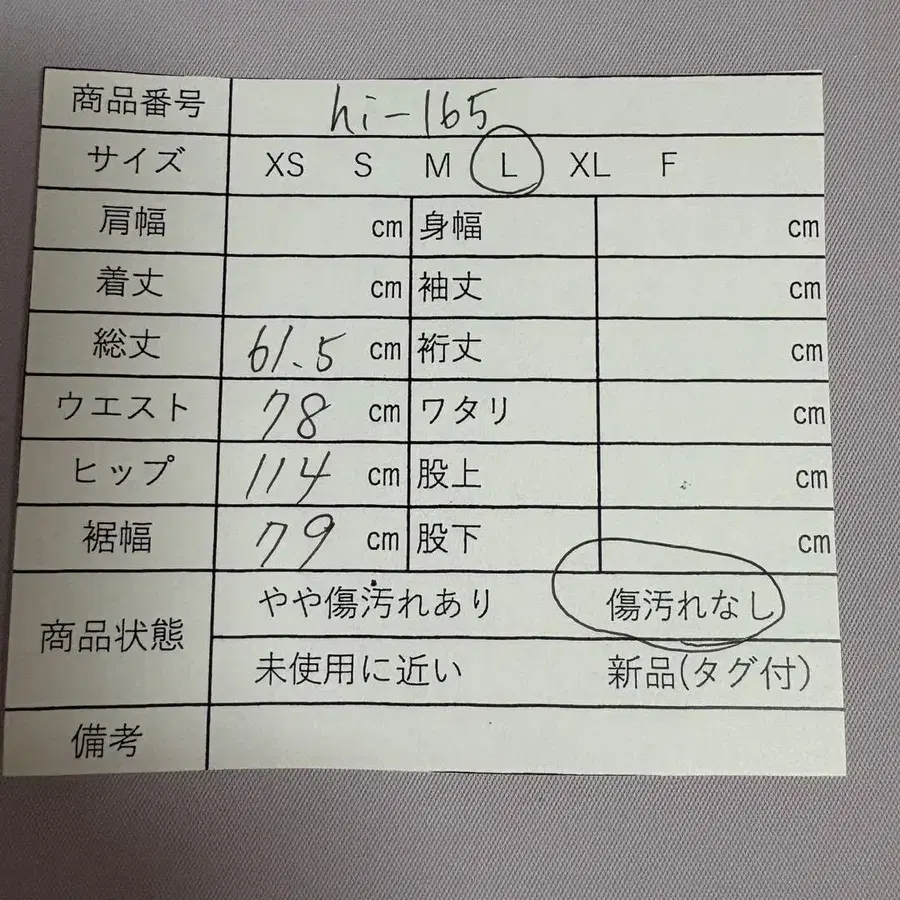 商品番号 hi-165
サイズ XS S M L XL F
肩幅 cm 身幅 cm
着丈 cm 袖丈 cm
総丈 61.5 cm 裄丈 cm
ウエスト 78 cm ワタリ cm
ヒップ 114 cm 股上 cm
裾幅 79 cm 股下 cm
商品状態 やや傷汚れあり 傷汚れなし
未使用に近い 新品(タグ付)
備考